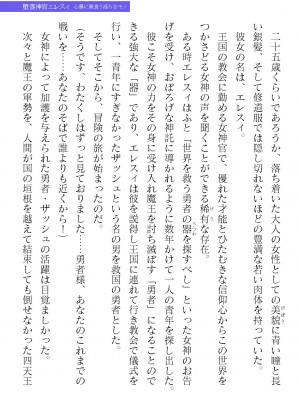 堕落神官エレスィ 心臓に巣食う淫らなモノ
二十五歳くらいであろうか、落ち着いた大人の女性としての美貌に青い瞳と長
い銀髪、そして修道服では隠し切れないほどの豊満な若い肉体を持っていた。
彼女の名は、エレスィ。
王国の教会に勤める女神官で、優れた才能とひたむきな信仰心からこの世界を
つかさどる女神の声を聞くことができる稀有な存在。
ある時エレスィはふと―世界を救う勇者の器を探すべし―といった女神のお告
げを受け、おぼろげな神託に導かれるように数年かけて一人の青年を探し出した。
彼こそ女神の力をその身に受け入れ魔王を討ち滅ぼす『勇者』になることので
きる強大な「器」であり、エレスィは彼を説得し王国に連れて行き教会で儀式を
行い、一青年にすぎなかったザッシュという名の男を救国の勇者とした。
そしてそこから、冒険の旅が始まったのだ。
（そうです、わたくしはずっと見ておりました……勇者様、あなたのこれまでの
戦いを……あなたのそばで誰よりも近くから！）
女神によって加護を与えられた勇者・ザッシュの活躍は目覚ましかった。
次々と魔王の軍勢を、人間が国の垣根を越えて結束しても倒せなかった四天王